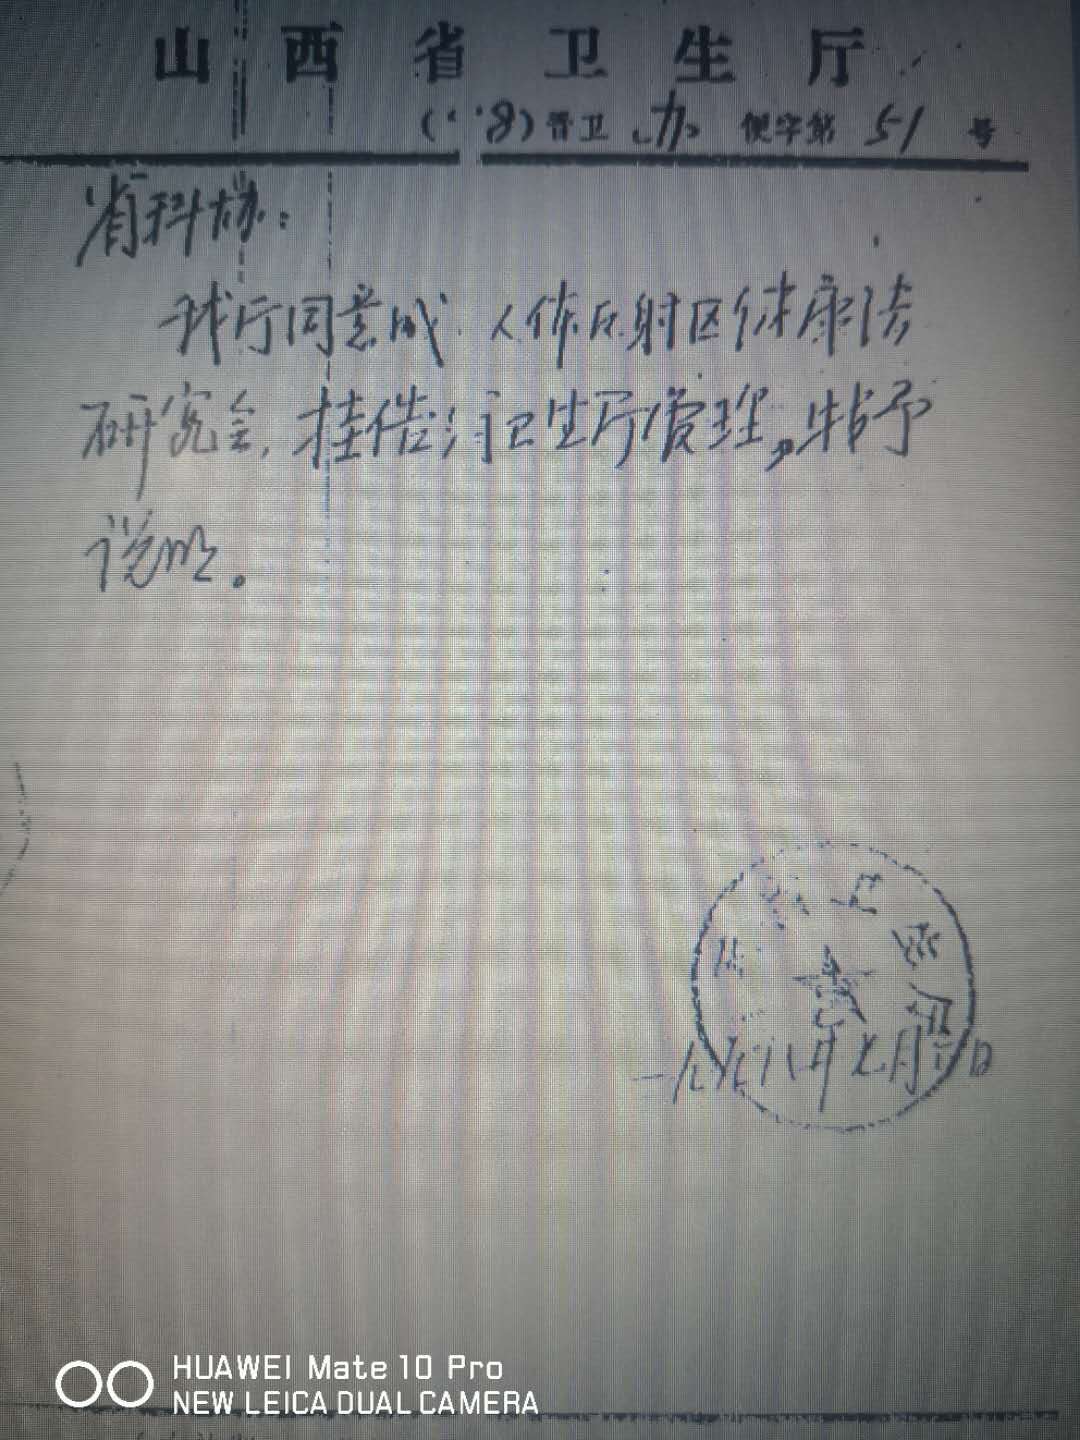 山西省卫生厅
( 8)晋卫 办 便字第 51 号
省科协:
我厅同意成 人体反射区健康法
研究会,挂靠 卫生厅管理,特予
说明。
一九九八年七月 日
HUAWEI Mate 10 Pro
NEW LEICA DUAL CAMERA